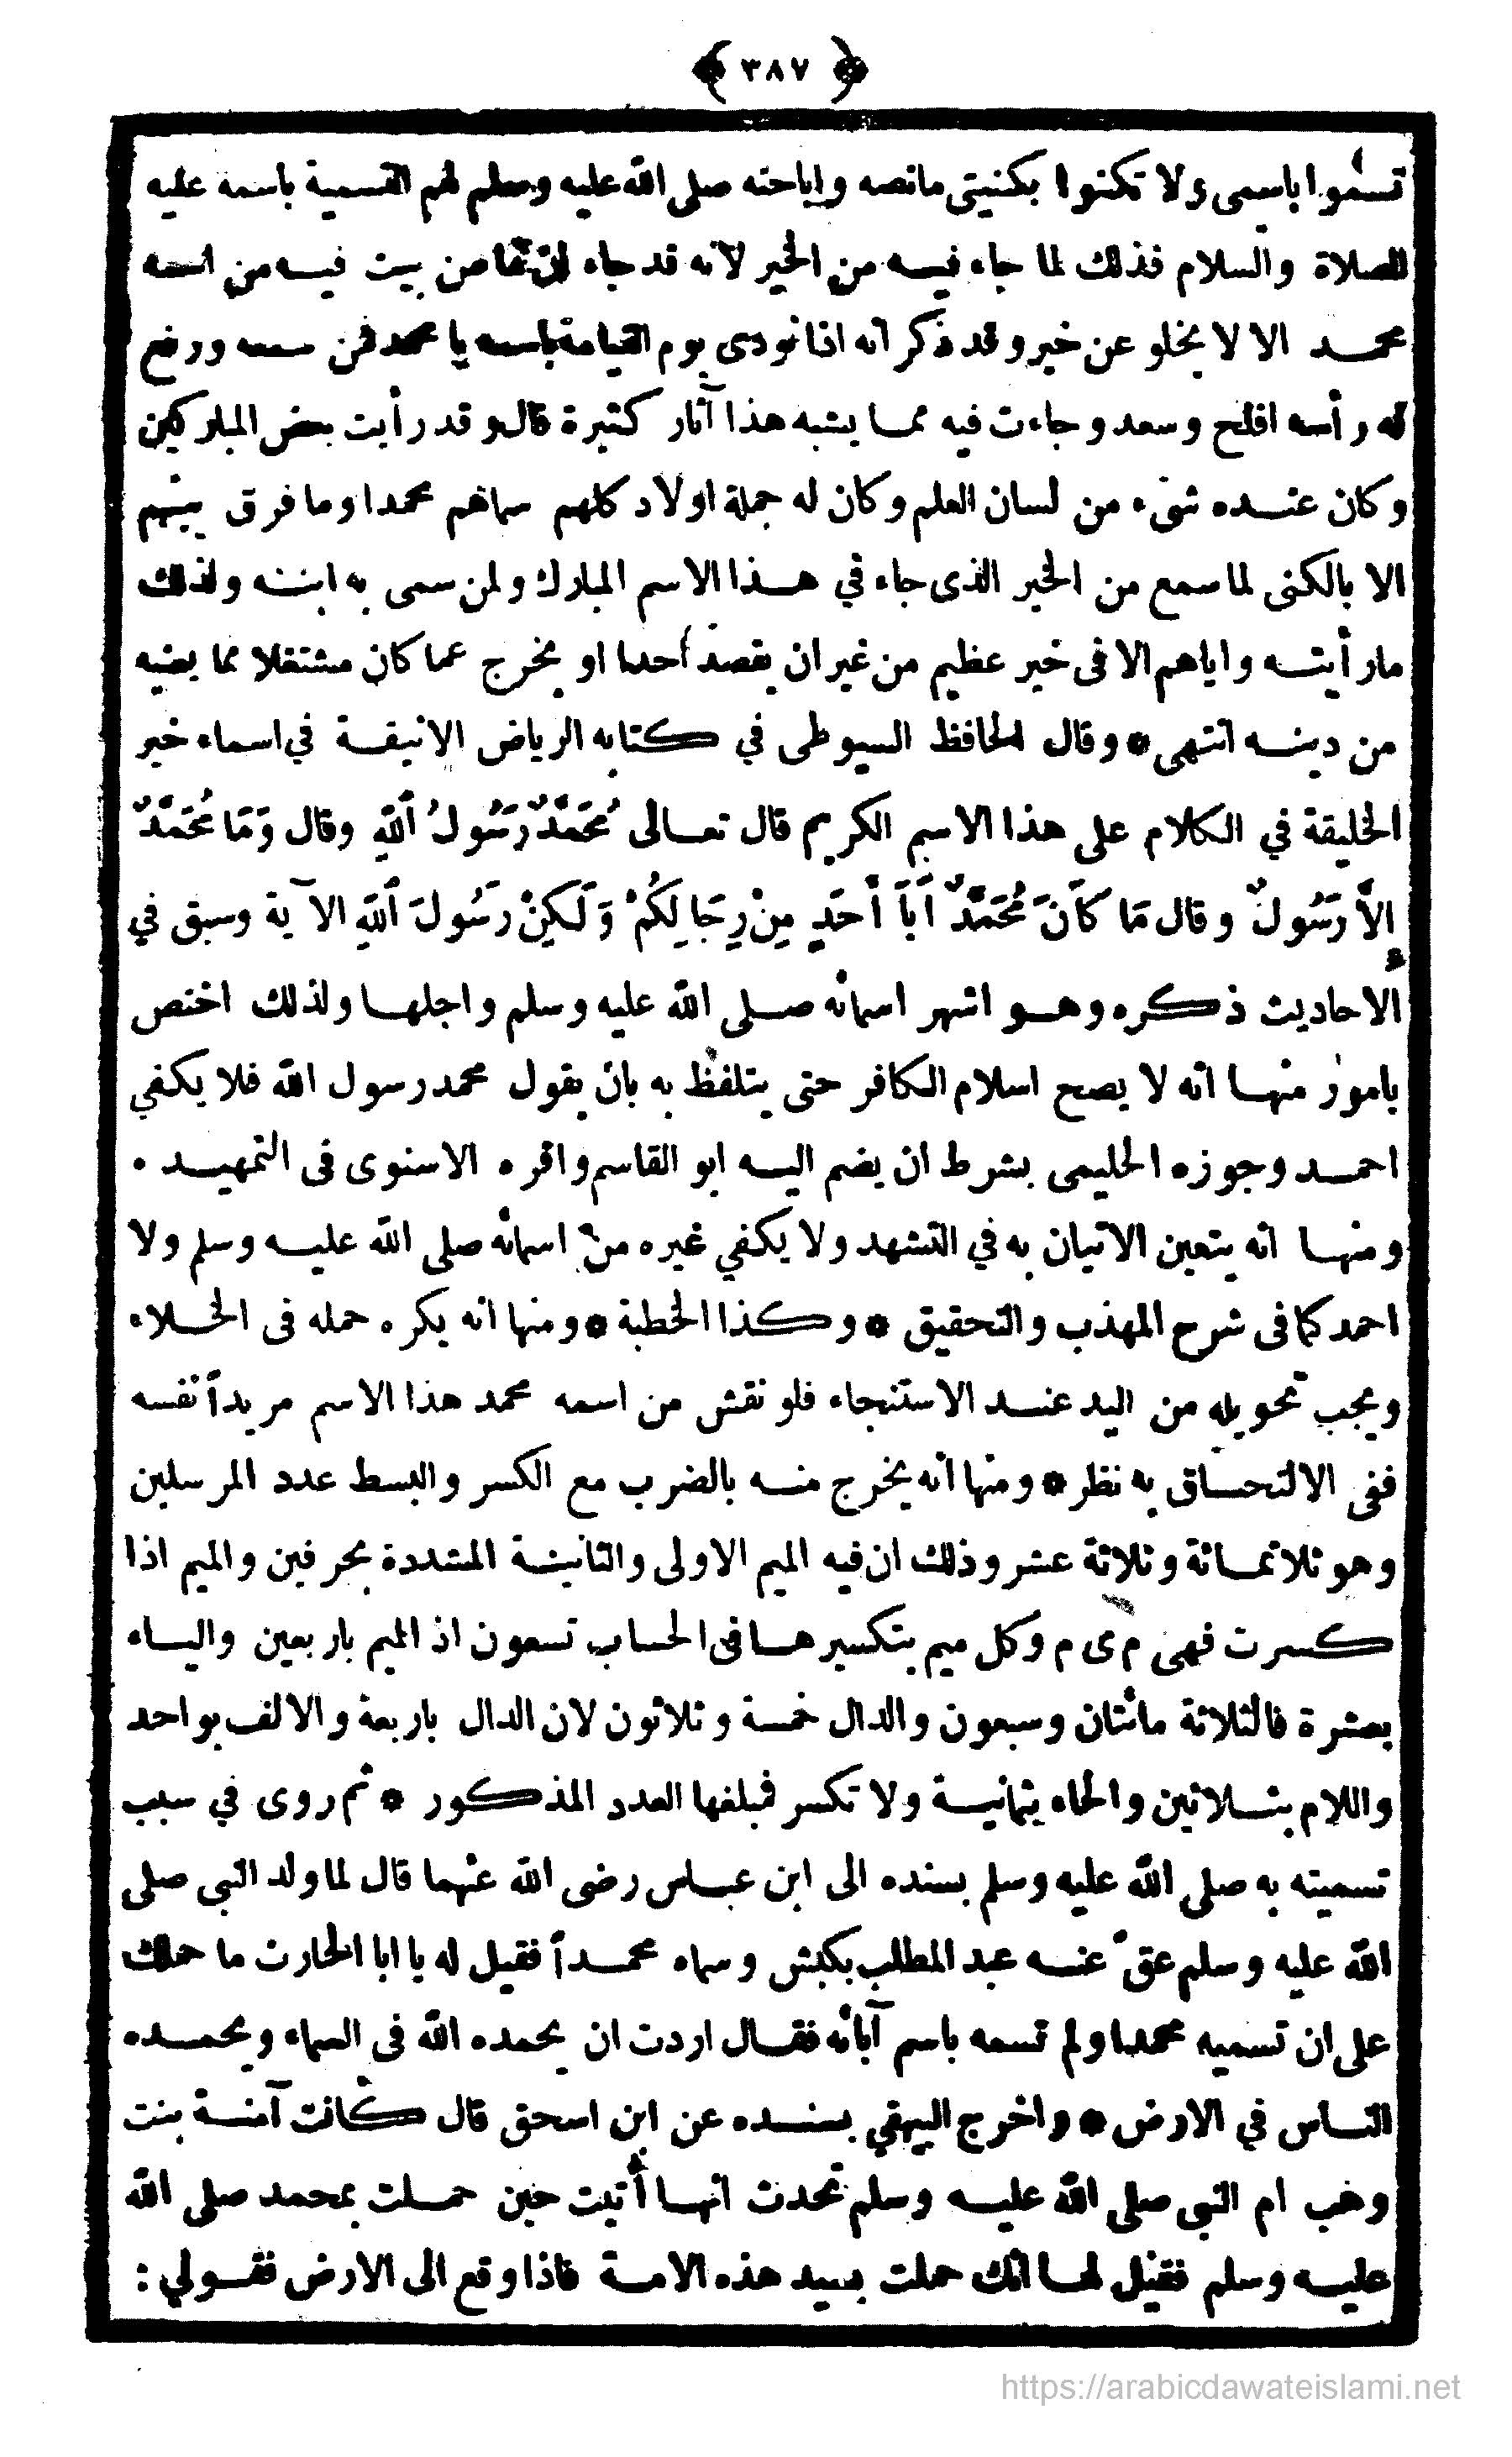 ﴿ ٣٨٧ ﴾
تسموا باسمى ولا تكنوا بكنيتى مانصه واباحته صلى الله عليه وسلم لهم التسمية باسمه عليه
الصلاة والسلام فذلك لما جاء فيه من الخير لانه قد جاء ان ما من بيت فيه من اسمه
محمد الا لا يخلو عن خير وقد ذكر انه اذا نودى يوم القيامة باسمه يا محمد فمن سمعه ورفع
له رأسه افلح وسعد وجاءت فيه مما يشبه هذا آثار كثيرة قال وقد رأيت بعض المباركين
وكان عنده شىء من لسان العلم وكان له جملة اولاد كلهم سماهم محمدا وما فرق بينهم
الا بالكنى لما سمع من الخير الذى جاء في هذا الاسم المبارك ولمن سمى به ابنه ولذلك
مارأيته واياهم الا فى خير عظيم من غير ان يقصد أحدا او يخرج عما كان مشتغلا مما يعنيه
من دينه انتهى * وقال الحافظ السيوطى في كتابه الرياض الانيقة في اسماء خير
الخليقة في الكلام على هذا الاسم الكريم قال تعالى مُحَمَّدٌ رَسُولُ ٱللهِ وقال وَمَا مُحَمَّدٌ
إِلاَّ رَسُولٌ وقال مَا كَانَ مُحَمَّدٌ أَبَا أَحَدٍ مِنْ رِجَالِكُمْ وَلَكِنْ رَسُولَ ٱللهِ الآية وسبق في
الاحاديث ذكره وهو اشهر اسمائه صلى الله عليه وسلم واجلها ولذلك اختص
بامور منها انه لا يصح اسلام الكافر حتى يتلفظ به بان يقول محمد رسول الله فلا يكفي
احمد وجوزه الحليمى بشرط ان يضم اليه ابو القاسم واقره الاسنوى فى التمهيد .
ومنها انه يتعين الاتيان به في التشهد ولا يكفي غيره من اسمائه صلى الله عليه وسلم ولا
احمد كما فى شرح المهذب والتحقيق * وكذا الخطبة * ومنها انه يكره حمله فى الخلاء
ويجب تحويله من اليد عند الاستنجاء فلو نقش من اسمه محمد هذا الاسم مريداً نفسه
ففى الالتحاق به نظر * ومنها انه يخرج منه بالضرب مع الكسر والبسط عدد المرسلين
وهو ثلاثمائة وثلاثة عشر وذلك ان فيه الميم الاولى والثانية المشددة بحرفين والميم اذا
كسرت فهى م ى م وكل ميم بتكسيرها فى الحساب تسعون اذ الميم باربعين والياء
بعشرة فالثلاثة مائتان وسبعون والدال خمسة وثلاثون لان الدال باربعة والالف بواحد
واللام بثلاثين والحاء بثمانية ولا تكسر فمبلغها العدد المذكور * ثم روى في سبب
تسميته به صلى الله عليه وسلم بسنده الى ابن عباس رضى الله عنهما قال لما ولد النبى صلى
الله عليه وسلم عق عنه عبد المطلب بكبش وسماه محمداً فقيل له يا ابا الحارث ما حملك
على ان تسميه محمدا ولم تسمه باسم آبائه فقال اردت ان يحمده الله فى السماء ويحمده
الناس في الارض * واخرج البيهقي بسنده عن ابن اسحق قال كانت آمنة بنت
وهب ام النبى صلى الله عليه وسلم تحدث انها أتيت حين حملت بمحمد صلى الله
عليه وسلم فقيل لها انك حملت بسيد هذه الامة فاذا وقع الى الارض فقولي :
https://arabicdawateislami.net